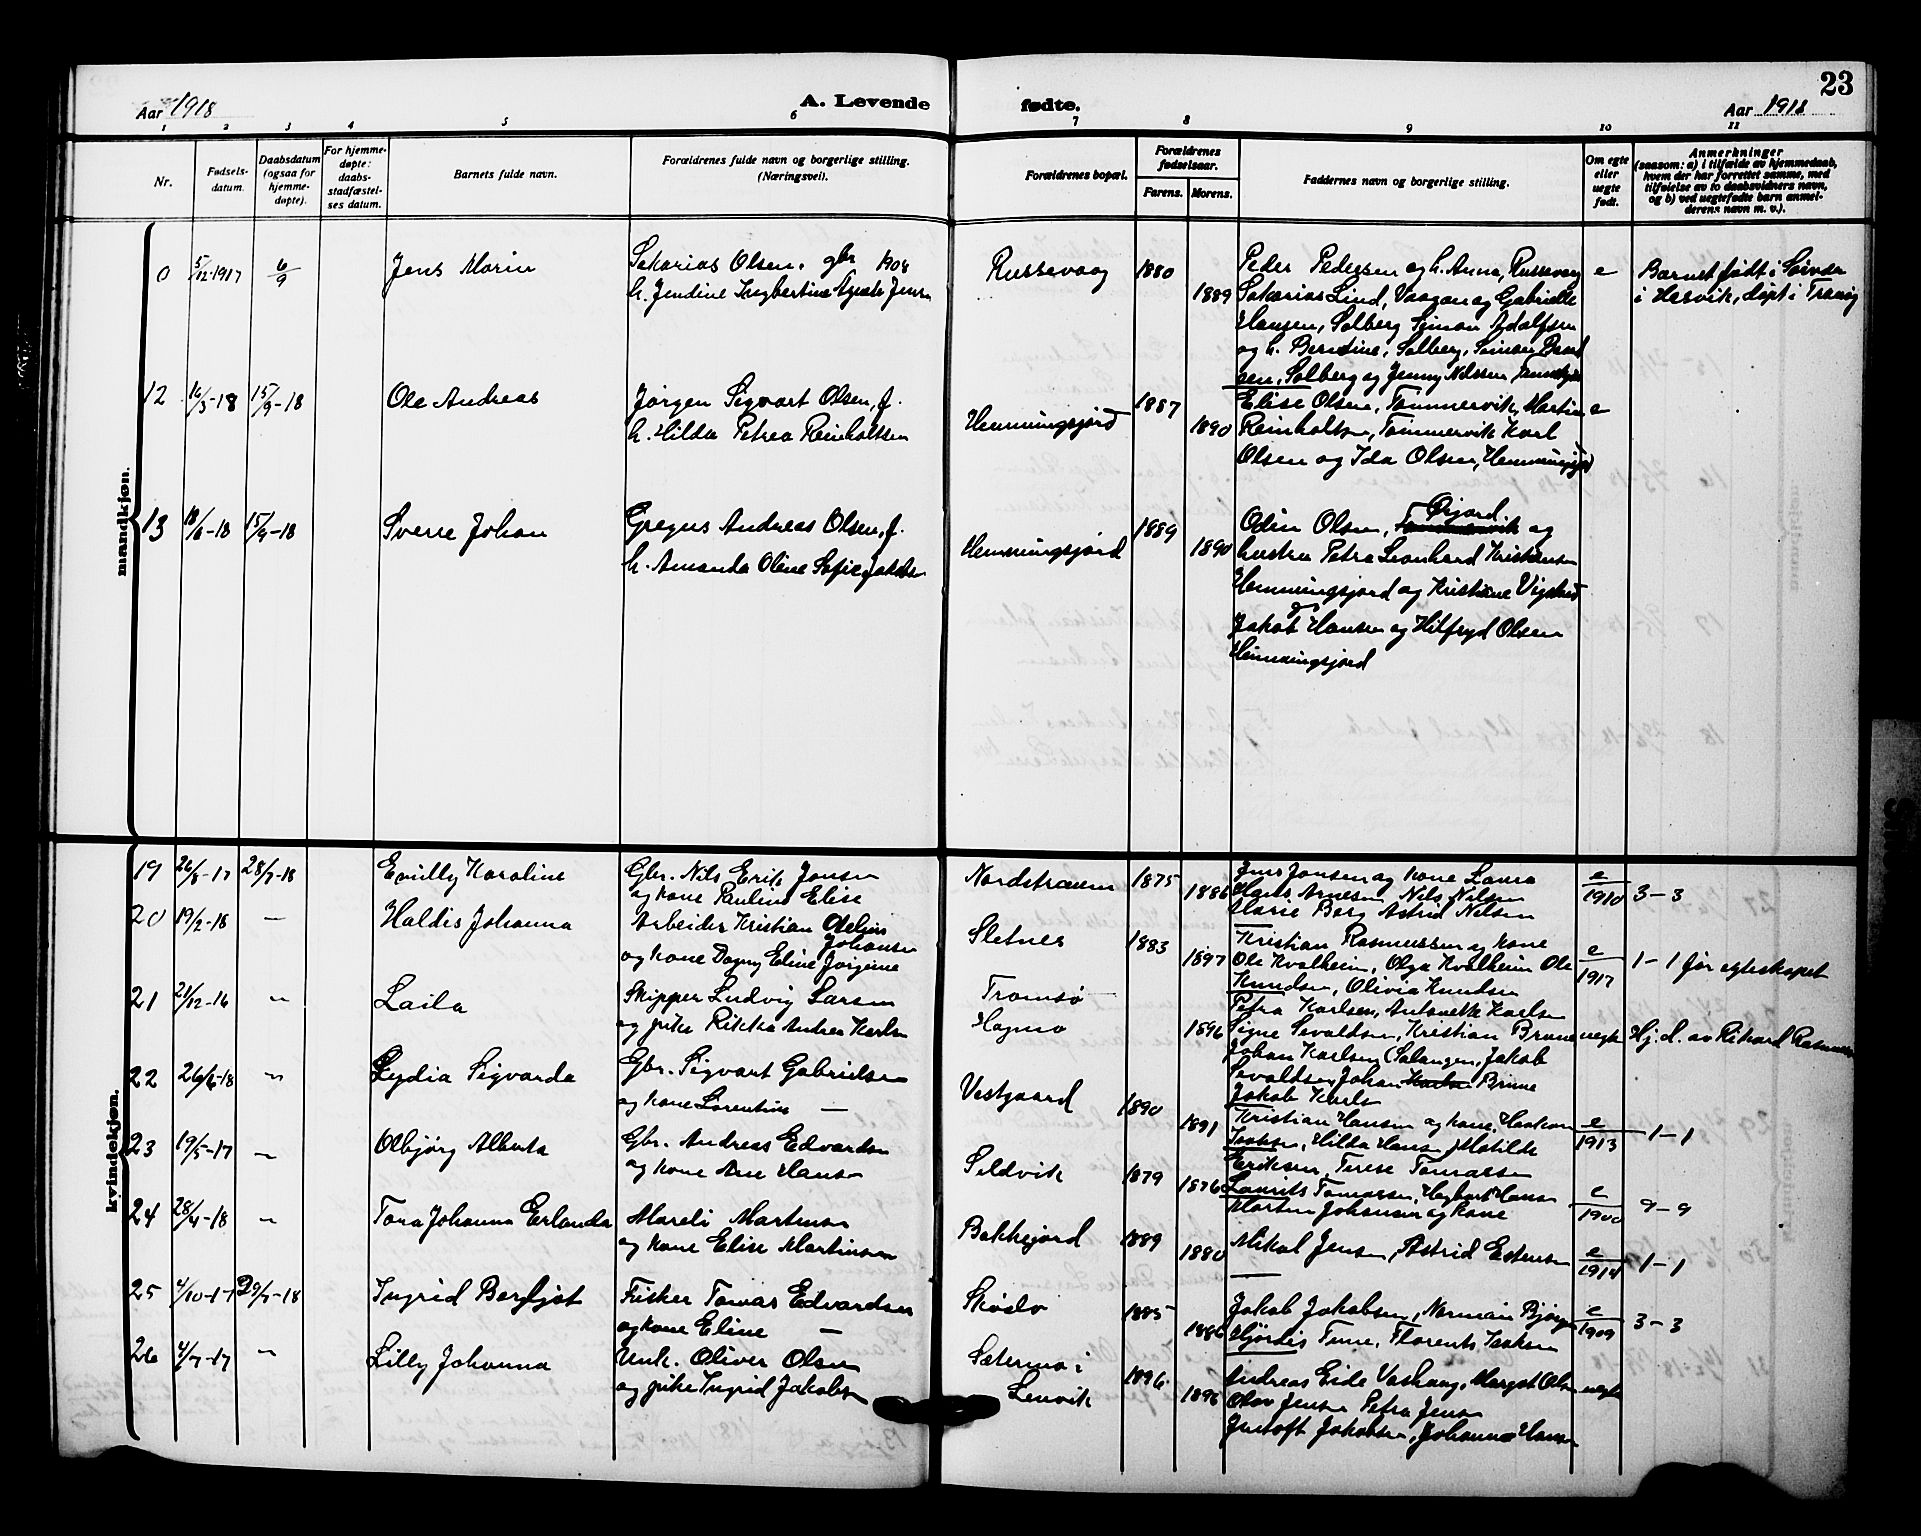 23
Aar 1918
A. Levende fødte.
Aar 1918
1 2 3 4 5 6 7 8 9 10 11
Nr.
Fødsels-
datum.
Daabsdatum
(ogsaa for
hjemme-
døpte).
For hjemme-
døpte:
daabs-
stadfæstel-
ses datum.
Barnets fulde navn.
Forældrenes fulde navn og borgerlige stilling.
(Næringsvei).
Forældrenes bopæl.
Forældrenes
fødselsaar.
Farens. Morens.
Faddernes navn og borgerlige stilling.
Om egte
eller
uegte
født.
Anmerkninger
(saasom: a) i tilfælde av hjemmedaab,
hvem der har forrettet samme, med
tilføielse av to daabsvidners navn,
og b) ved uegtefødte barn anmel-
derens navn m. v.).
mandkjøn.
0 5/12-1917 6/9 Jens Marin
Sakarias Olsen, gbr 1908
h. Jendine Ingbertine Jens
Russevaag 1880 1889
Peder Pedersen og h. Anna, Russevaag
Sakarias Lind, Vaagan og Gabrielle
Hansen, Solberg Simon Adolfsen
og h. Berntine, Solberg, Simon
sen, Solberg og Jenny Nilssen
e
Barnet født i
i Hasvik, døpt i Tranøy
12 16/5-18 15/9-18 Ole Andreas
Jørgen Sigvart Olsen, f.
h. Hilda Petrea Reinholtsen
Hemmingsjord 1887 1890
Elise Olsen, Tømmervik, Martin
Reinholtsen, Tømmervik Karl
Olsen og Ida Olsen, Hemmingsjord
e
13 18/6-18 15/9-18 Sverre Johan
Gregus Andreas Olsen, f.
h. Amanda Oline Sofie Jakobs
Hemmingsjord 1889 1890
Øijord
Odin Olsen, Tømmervik og
hustru Petra Leonhard Kristiansen
Hemmingsjord og Kristine Vigstad
Jakob Hansen og Hilfryd Olsen
Hemmingsjord
kvindekjøn.
19 26/8-17 28/7-18 Emilly Karoline
Gbr. Nils Erik Jensen
og kone Pauline Elise
Nordstraumen 1875 1886
Jens Jensen og kone Laura
Hans Arnesen Nils Nilsen
Marie Berg Astrid Nilsen
e/1910 3-3
20 19/2-18 — Haldis Johanna
Arbeider Kristian Odelius
Johansen
og kone Dagny Eline Jørgine
Sletnes 1883 1897
Kristian Rasmussen og kone
Ole Kvalheim, Olga Kvalheim Ole
Knudsen, Olivia Knudsen
e/1917 1-1 før egteskapet
21 21/12-16 " Laila
Skipper Ludvig Larsen
og pike Rikka Andrea Karls
Tromsø
Hagmo 1896
Petra Karlsen, Antonette Karlsen
Signe Sevaldsen, Kristian Brune
Johan Karlsen (Salangen, Jakob
Sevaldsen, Johan Brune
Jakob Karls
uegte
Hj. d. av Rikard Rasmus
22 26/6-18 " Lydia Sigvarda
Gbr. Sigvart Gabrielsen
og kone Lorentine —
Vestgaard 1890 1891
Kristian Hansen og kone, Haakon
Hilda Hans Matilde
Eriksen, Terese Tomassen
e/1913 1-1
23 19/5-17 " Olbjørg Alberta
Gbr. Andreas Edvardsen
og kone Ane Hansen
Seldvik 1879 1876
Laurits Tomassen, Hagbart Hansen
Morten Johansen og kone
e/1900 9-9
24 28/4-18 " Tora Johanna Erlanda
Mareli Martinsen
og kone Elise Martinsen
Bakkejord 1889 1880
Mikal Jensen, Astrid Estensen
e/1914 1-1
25 4/10-17 29/7-18 Ingrid Bergljot
Fisker Tomas Edvardsen
og kone Eline —
1885 1886
Jakob Jakobsen, Normain
Hjørdis Tune, Florents Isaksen
e/1909 3-3
26 4/7-17 " Lilly Johanna
Unk. Oliver Olsen
og pike Ingrid Jakobs
Sætermo i
Lenvik
1896 1896
Andreas Eide Vashaug, Margot Olsen
Olav Jensen Petra Jensen
Justoft Jakobsen, Johanna Hansen
uegte